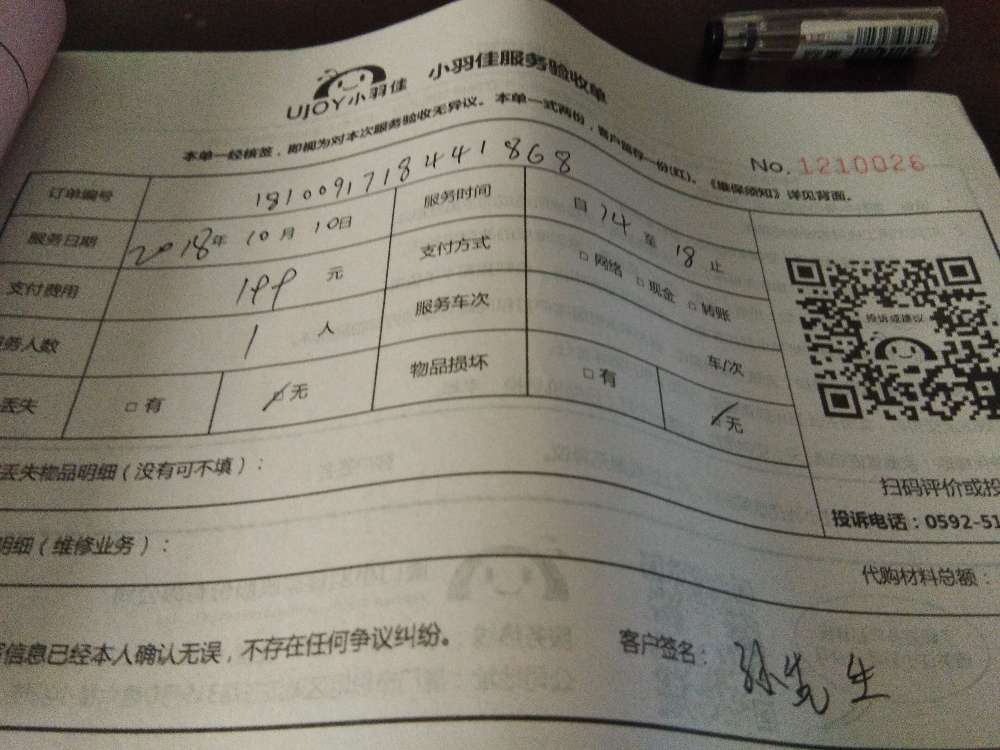 UJOY小羽佳 小羽佳服务验收单
本单一经核签，即视为对本次服务验收无异议。本单一式两份，客户留存一份(红)。《维保须知》详见背面。
No. 1210026
订单编号 181009171844 1868
服务日期 2018年 10月 10日 服务时间 自 14 至 18 止
支付费用 199 元 支付方式 □ 网络 □ 现金 □ 转账
务人数 1 人 服务车次 车/次
丢失 □ 有 □ 无 物品损坏 □ 有 □ 无
投诉或建议
丢失物品明细（没有可不填）：
扫码评价或投
投诉电话：0592-51
明细（维修业务）：
代购材料总额：
信息已经本人确认无误，不存在任何争议纠纷。 客户签名： 孙先生